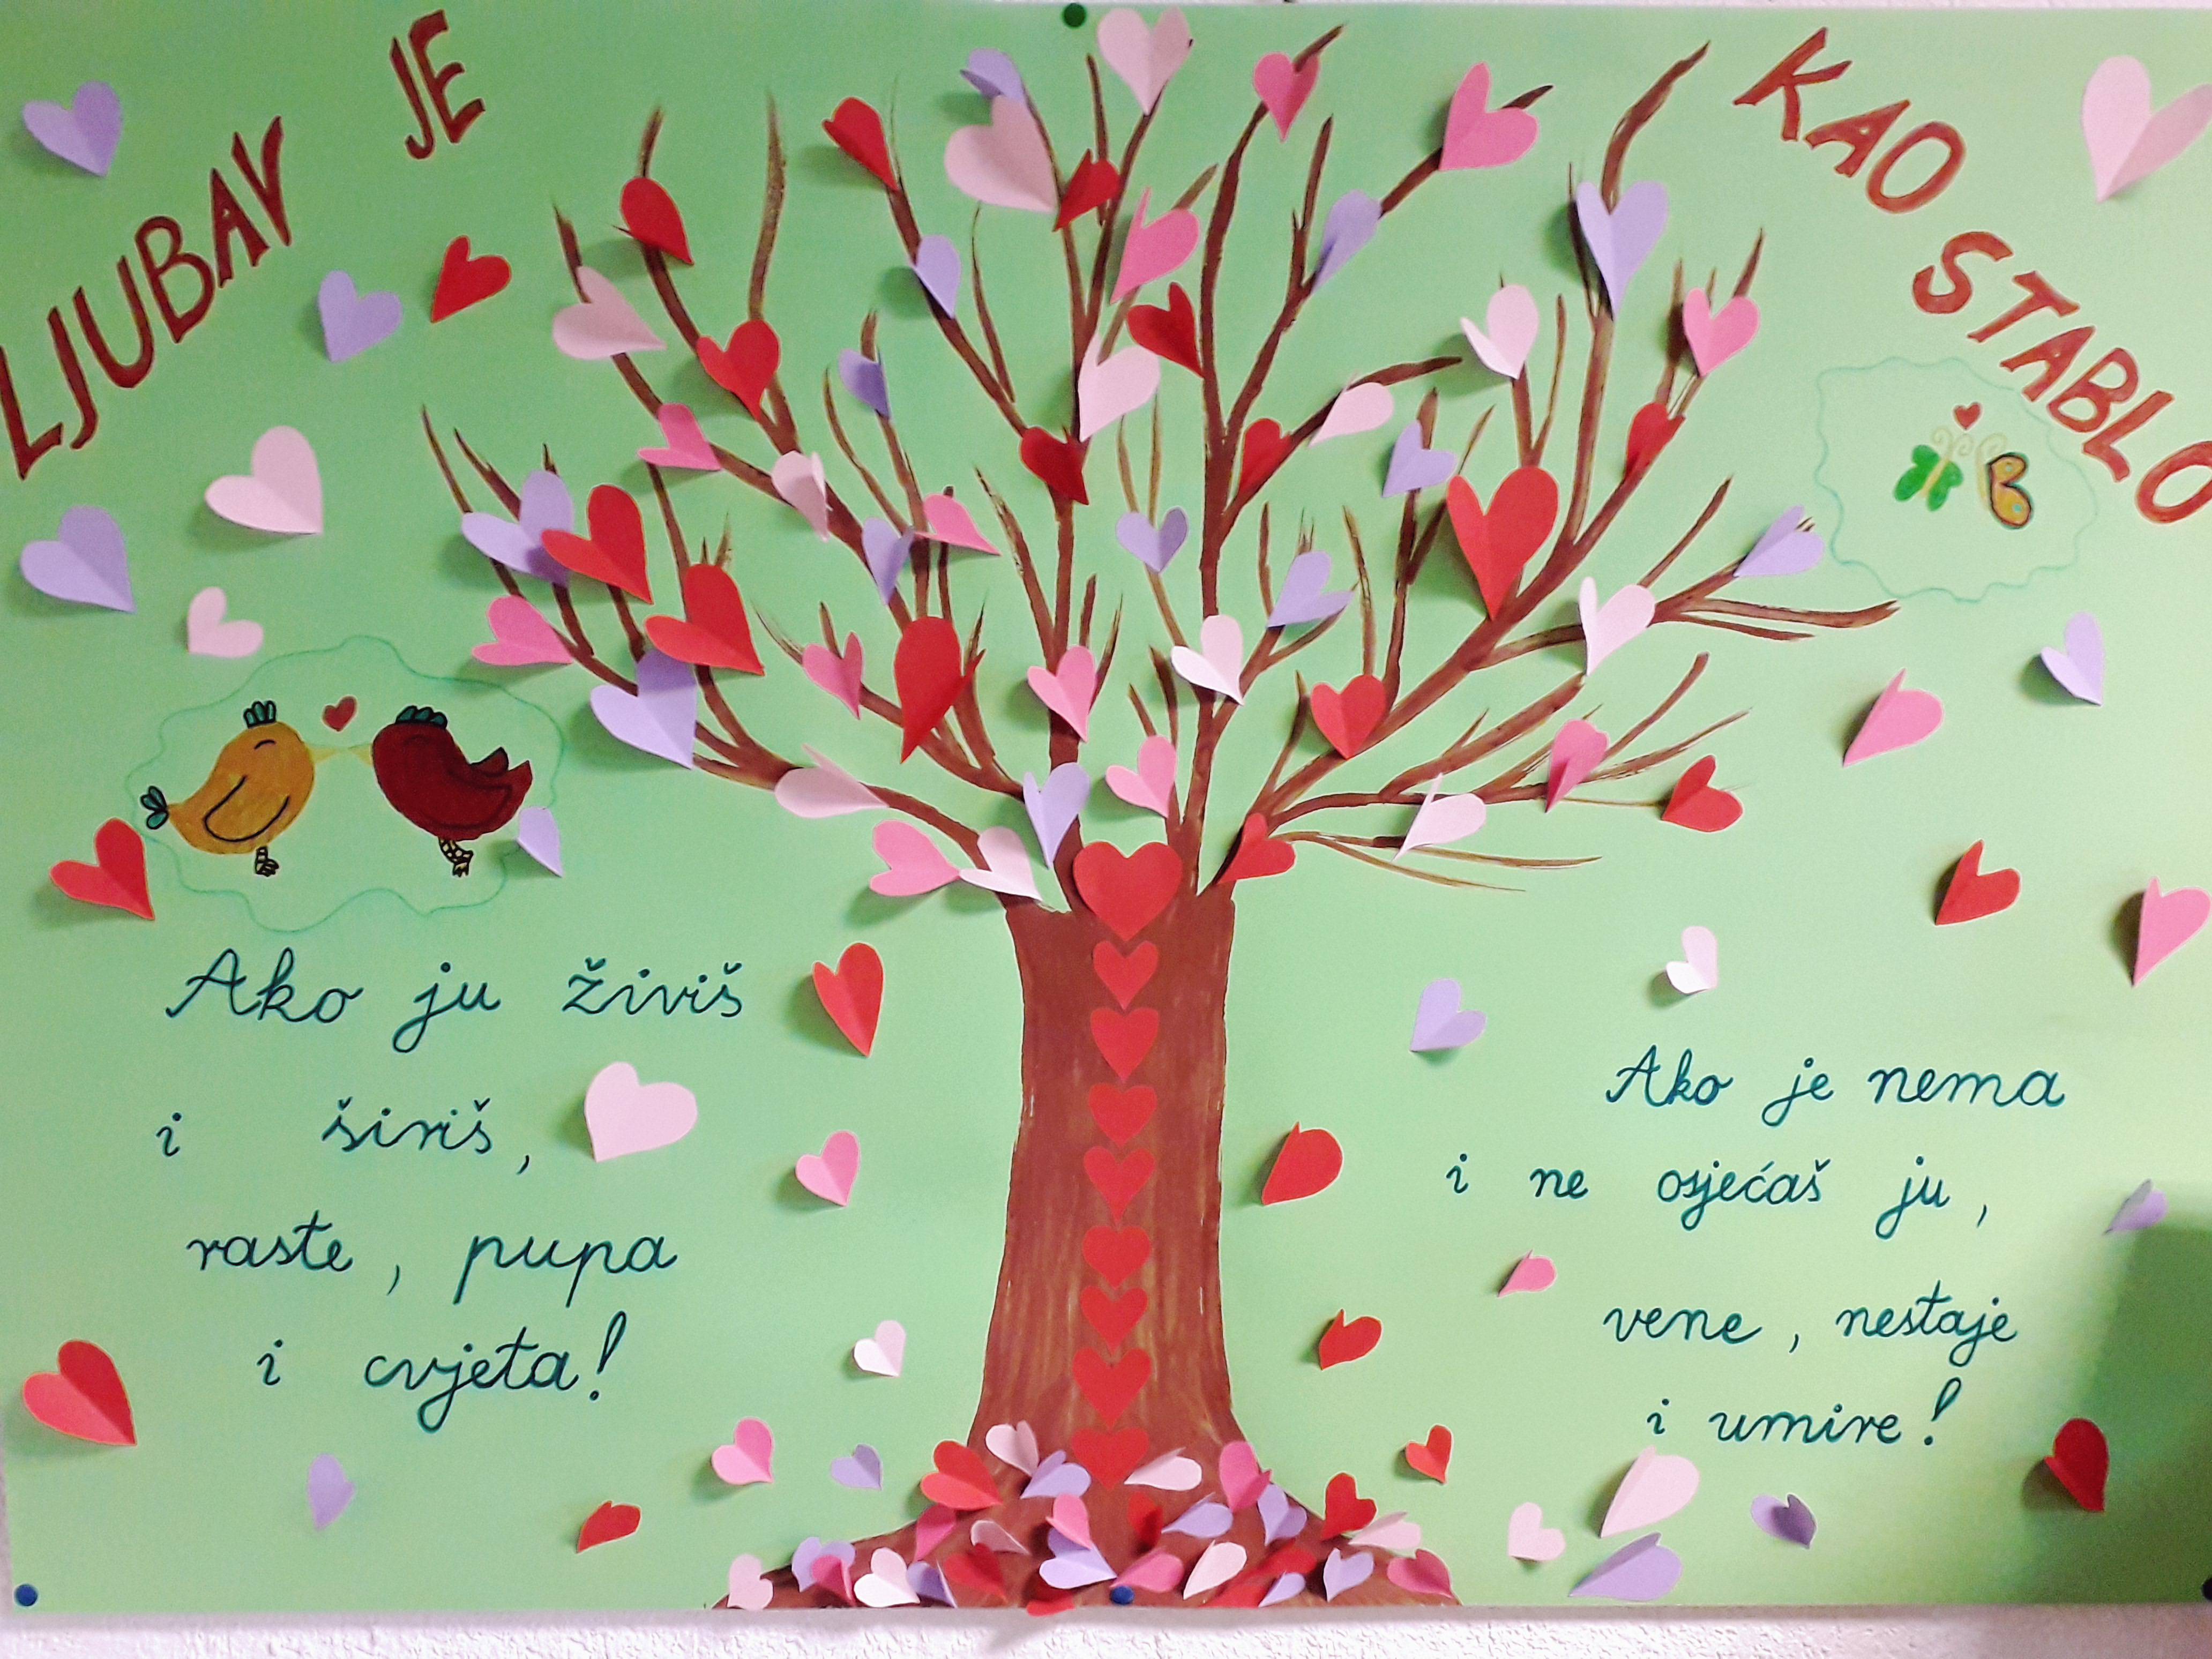 LJUBAV JE KAO STABLO
Ako ju živiš
i širiš,
raste, pupa
i cvjeta!
Ako je nema
i ne osjećaš ju,
vene, nestaje
i umire!